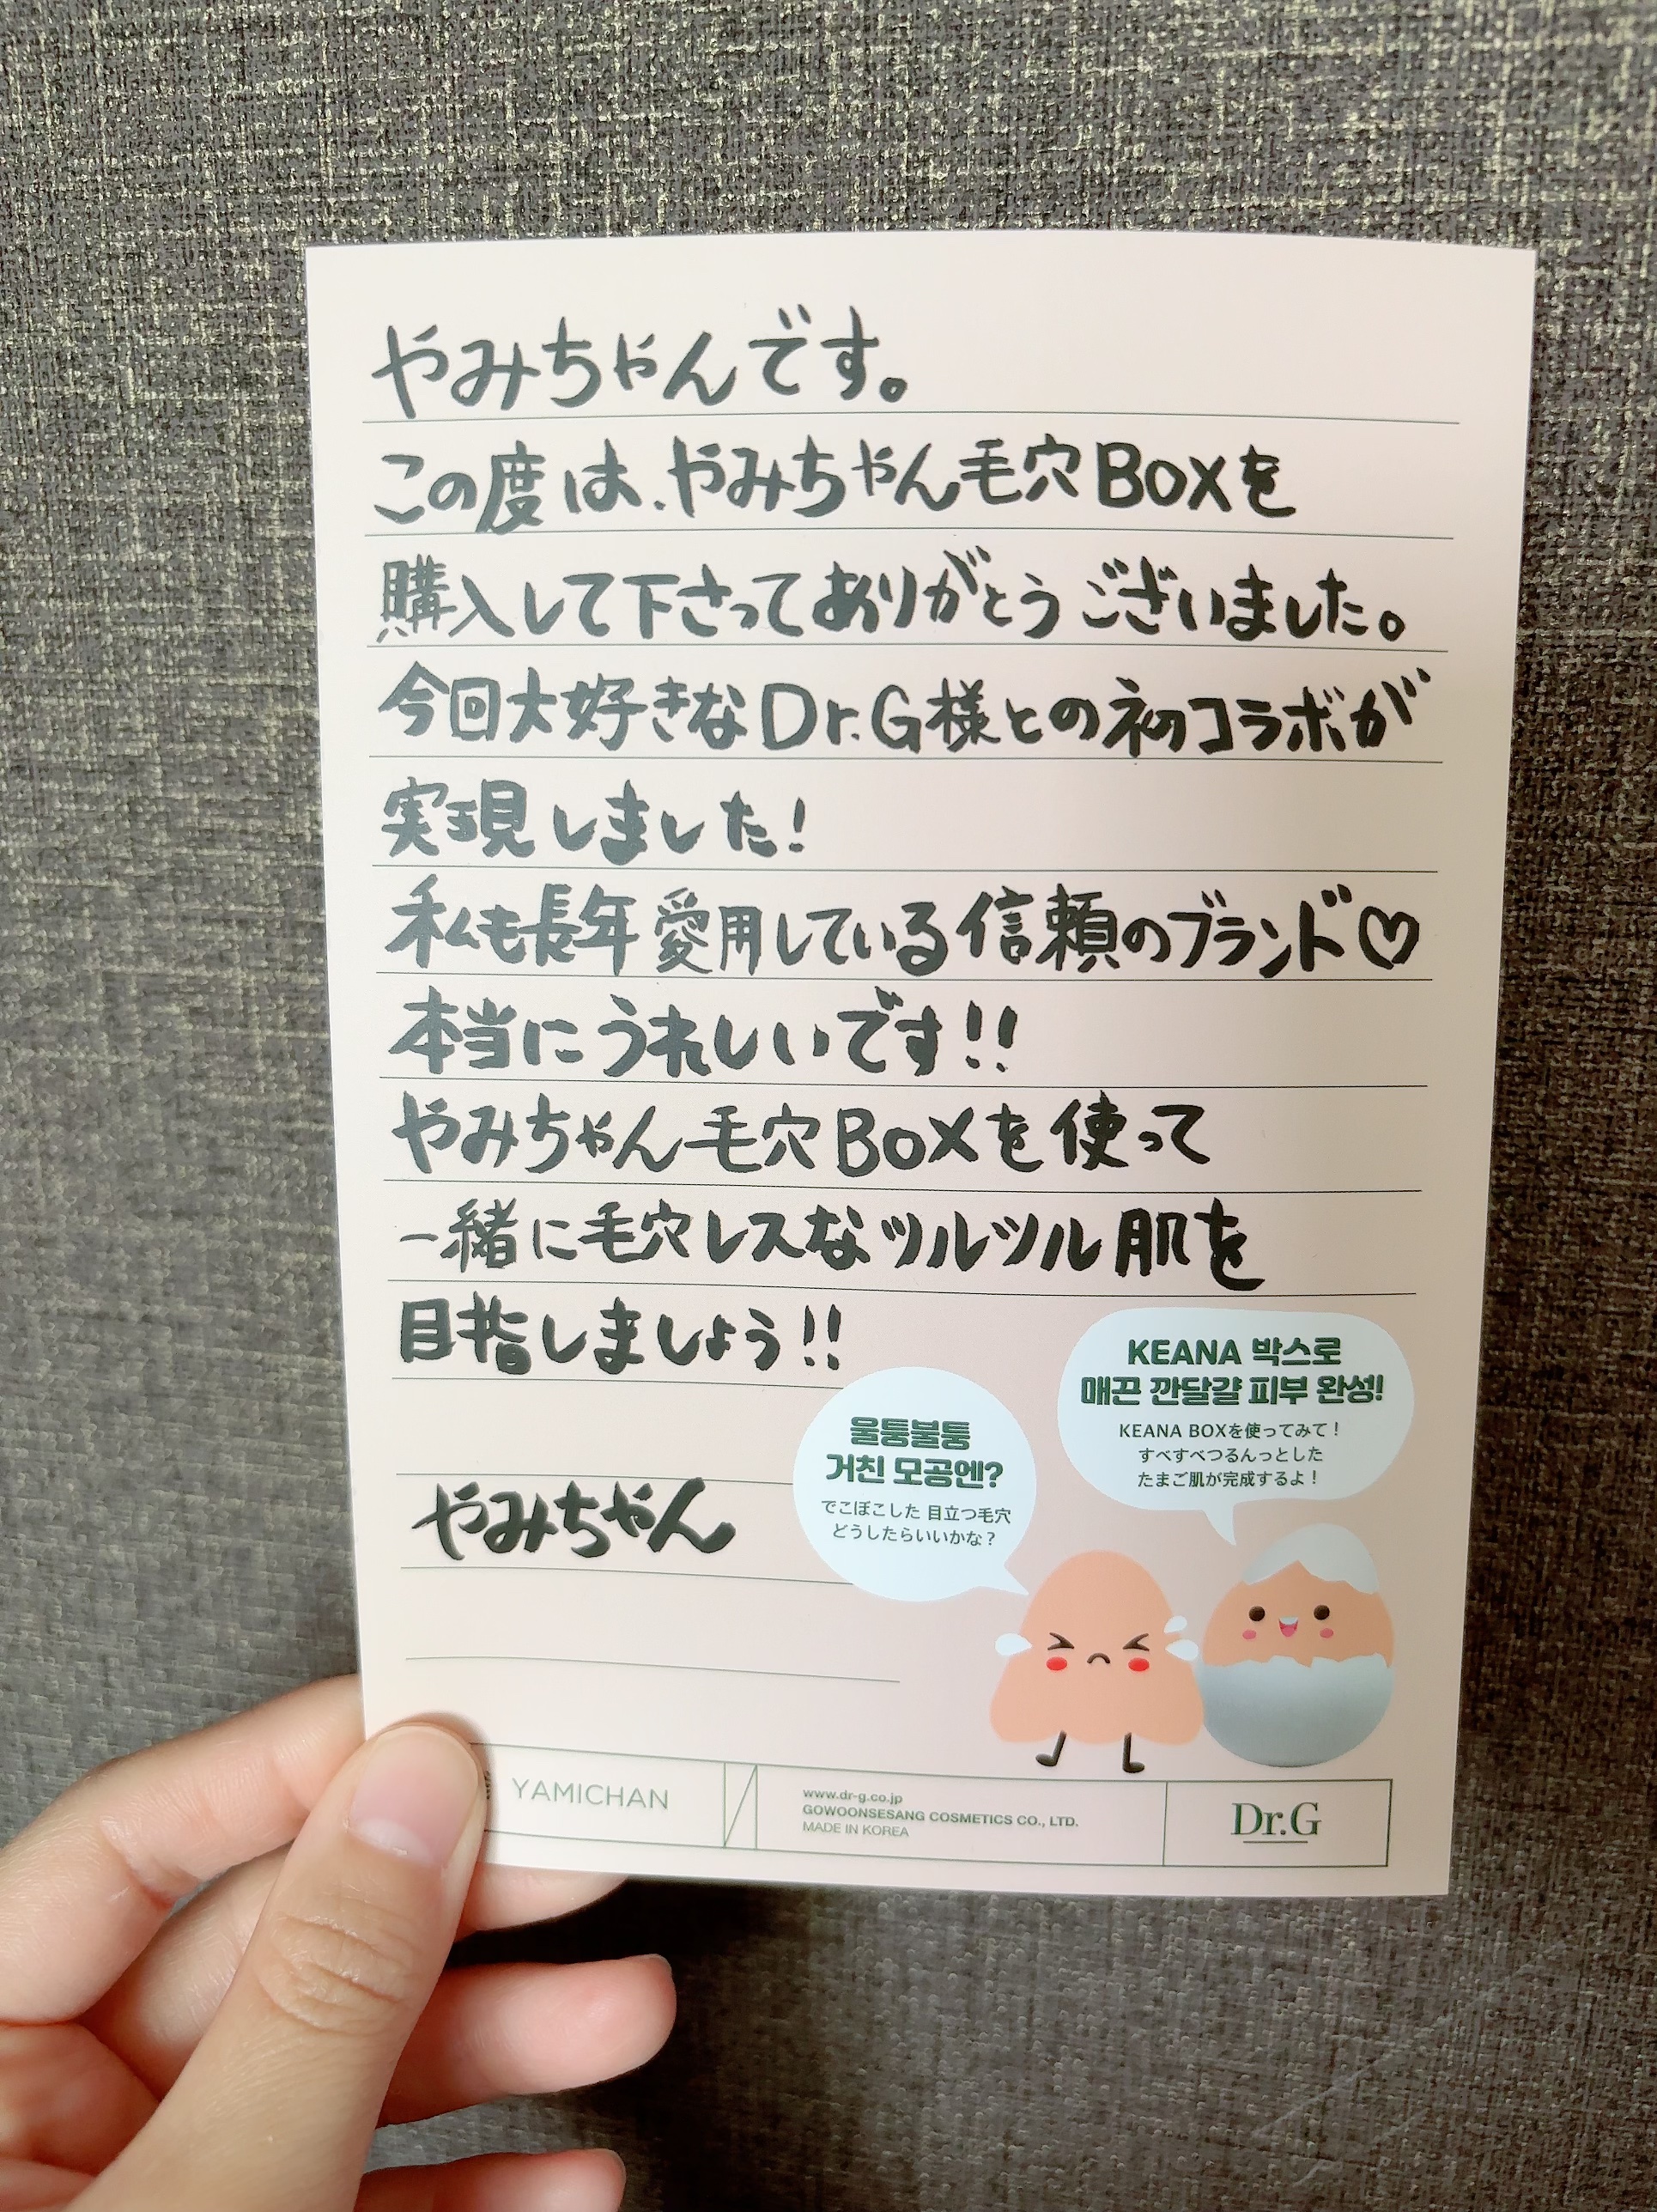 やみちゃんです。
この度は、やみちゃん毛穴BOXを
購入して下さってありがとうございました。
今回大好きなDr.G様との初コラボが
実現しました!
私も長年愛用している信頼のブランド♡
本当にうれしいです!!
やみちゃん毛穴BOXを使って
一緒に毛穴レスなツルツル肌を
目指しましょう!!
やみちゃん
울퉁불퉁
거친 모공엔?
でこぼこした 目立つ毛穴
どうしたらいいかな？
KEANA 박스로
매끈 깐달걀 피부 완성!
KEANA BOXを使ってみて！
すべすべつるんっとした
たまご肌が完成するよ！
YAMICHAN
www.dr-g.co.jp
GOWOONSESANG COSMETICS CO., LTD.
MADE IN KOREA
Dr.G